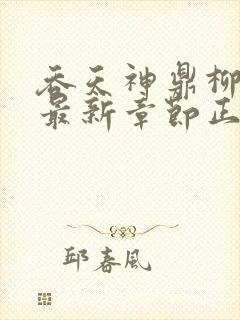 吞天神鼎柳
最新章节正
邱春风